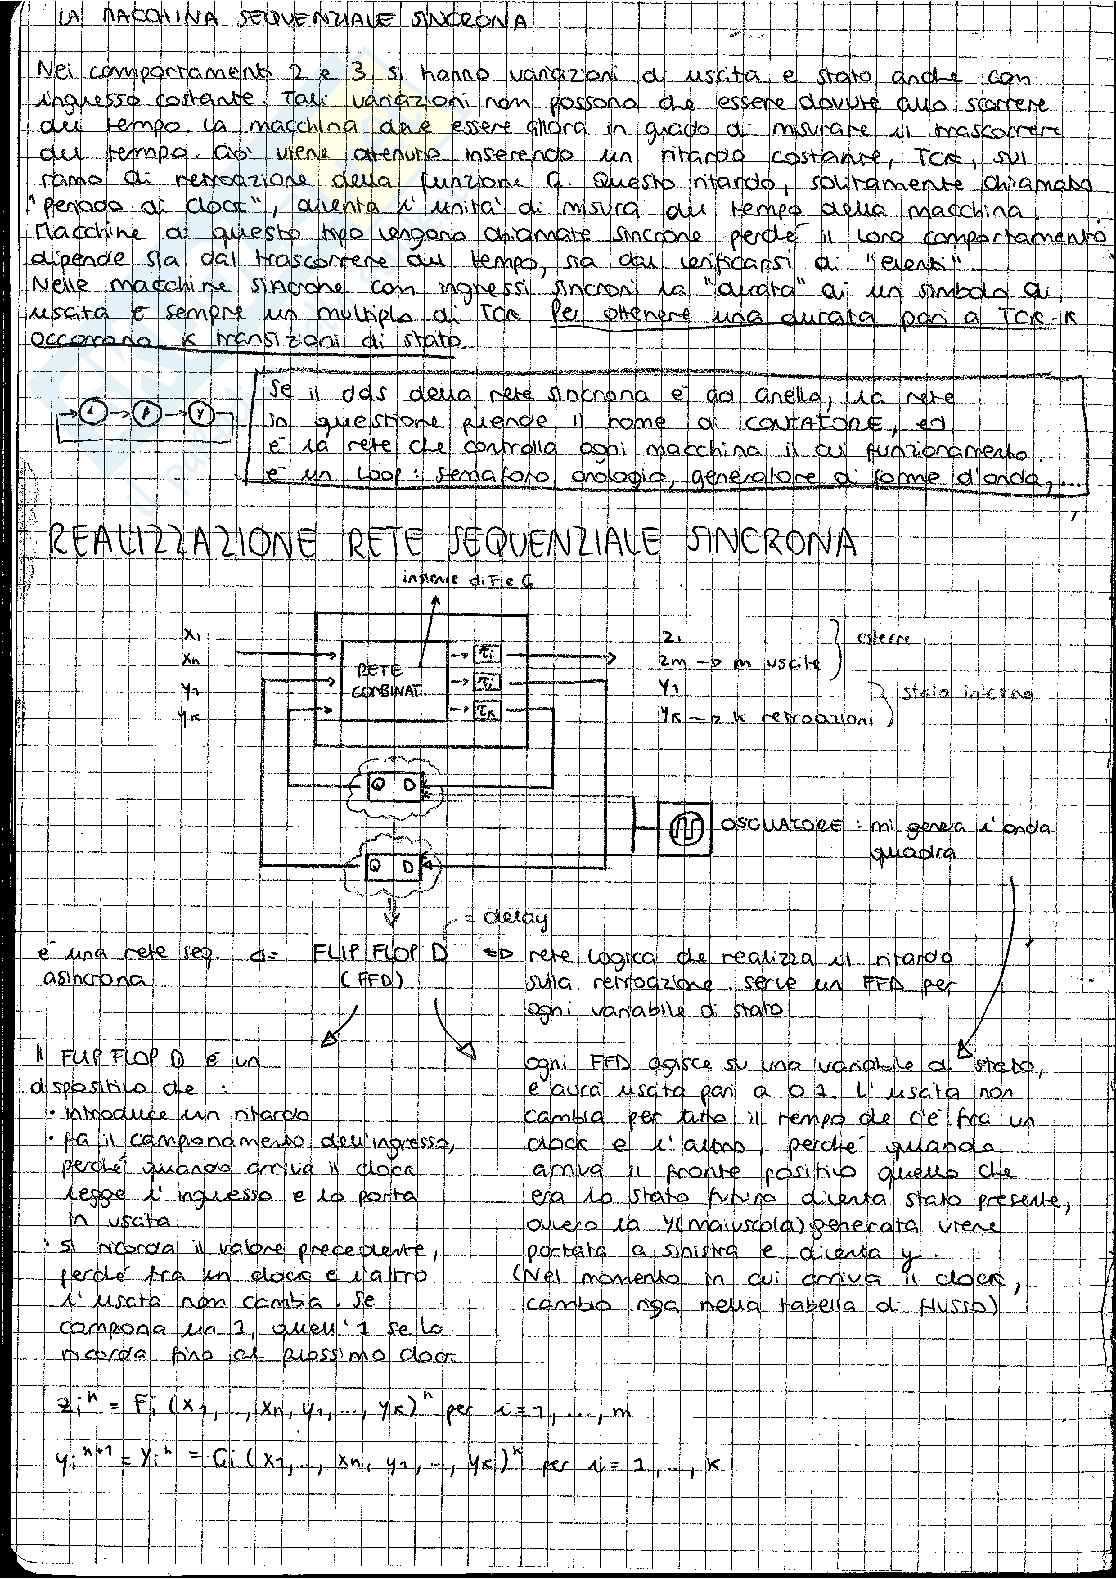 LA MACCHINA SEQUENZIALE SINCRONA
Nei comportamenti 2 e 3 si hanno variazioni di uscita e stato anche con
ingresso costante. Tali variazioni non possono che essere dovute allo scorrere
del tempo. La macchina deve essere allora in grado di misurare il trascorrere
del tempo. Ciò viene ottenuto inserendo un ritardo costante, TCK, sul
ramo di retroazione della funzione G. Questo ritardo, solitamente chiamato
"periodo di clock", diventa l'unità di misura del tempo della macchina.
Macchine di questo tipo vengono chiamate sincrone perché il loro comportamento
dipende sia dal trascorrere del tempo, sia dal verificarsi di "eventi".
Nelle macchine sincrone con ingressi sincroni la "durata" di un simbolo di
uscita è sempre un multiplo di TCK. Per ottenere una durata pari a TCK·K
occorrono K transizioni di stato.
α β γ
Se il dds della rete sincrona è ad anello, la rete
in questione prende il nome di CONTATORE, ed
è la rete che controlla ogni macchina il cui funzionamento
è un loop: semaforo, orologio, generatore di forme d'onda,...
REALIZZAZIONE RETE SEQUENZIALE SINCRONA
insieme di F e G
X1
Xn
y1
yK
RETE
COMBINAT.
τi
τi
τK
Z1
Zm → m uscite
esterne
Y1
YK → K retroazioni
stato interno
Q D
Q D
OSCILLATORE : mi genera l'onda
quadra
= delay
è una rete seq.
asincrona
FLIP FLOP D
(FFD)
rete logica che realizza il ritardo
sulla retroazione. serve un FFD per
ogni variabile di stato
Il FLIP FLOP D è un
dispositivo che :
· introduce un ritardo
· fa il campionamento dell'ingresso,
perché quando arriva il clock
legge l'ingresso e lo porta
in uscita
· si ricorda il valore precedente,
perché fra un clock e l'altro
l'uscita non cambia. Se
campiona un 1, quell'1 se lo
ricorda fino al prossimo clock.
ogni FFD agisce su una variabile di stato,
e avrà uscita pari a 0 1. L'uscita non
cambia per tutto il tempo che c'è fra un
clock e l'altro, perché quando
arriva il fronte positivo quello che
era lo stato futuro diventa stato presente,
ovvero la Y(maiuscola) generata viene
portata a sinistra e diventa y.
(Nel momento in cui arriva il clock,
cambio riga nella tabella di flusso)
zi^n = Fi (x1,..., xn, y1,..., yK)^n per i=1,..., m
yi^n+1 = Yi^n = Gi (x1,..., xn, y1,..., yK)^n per i = 1,..., K